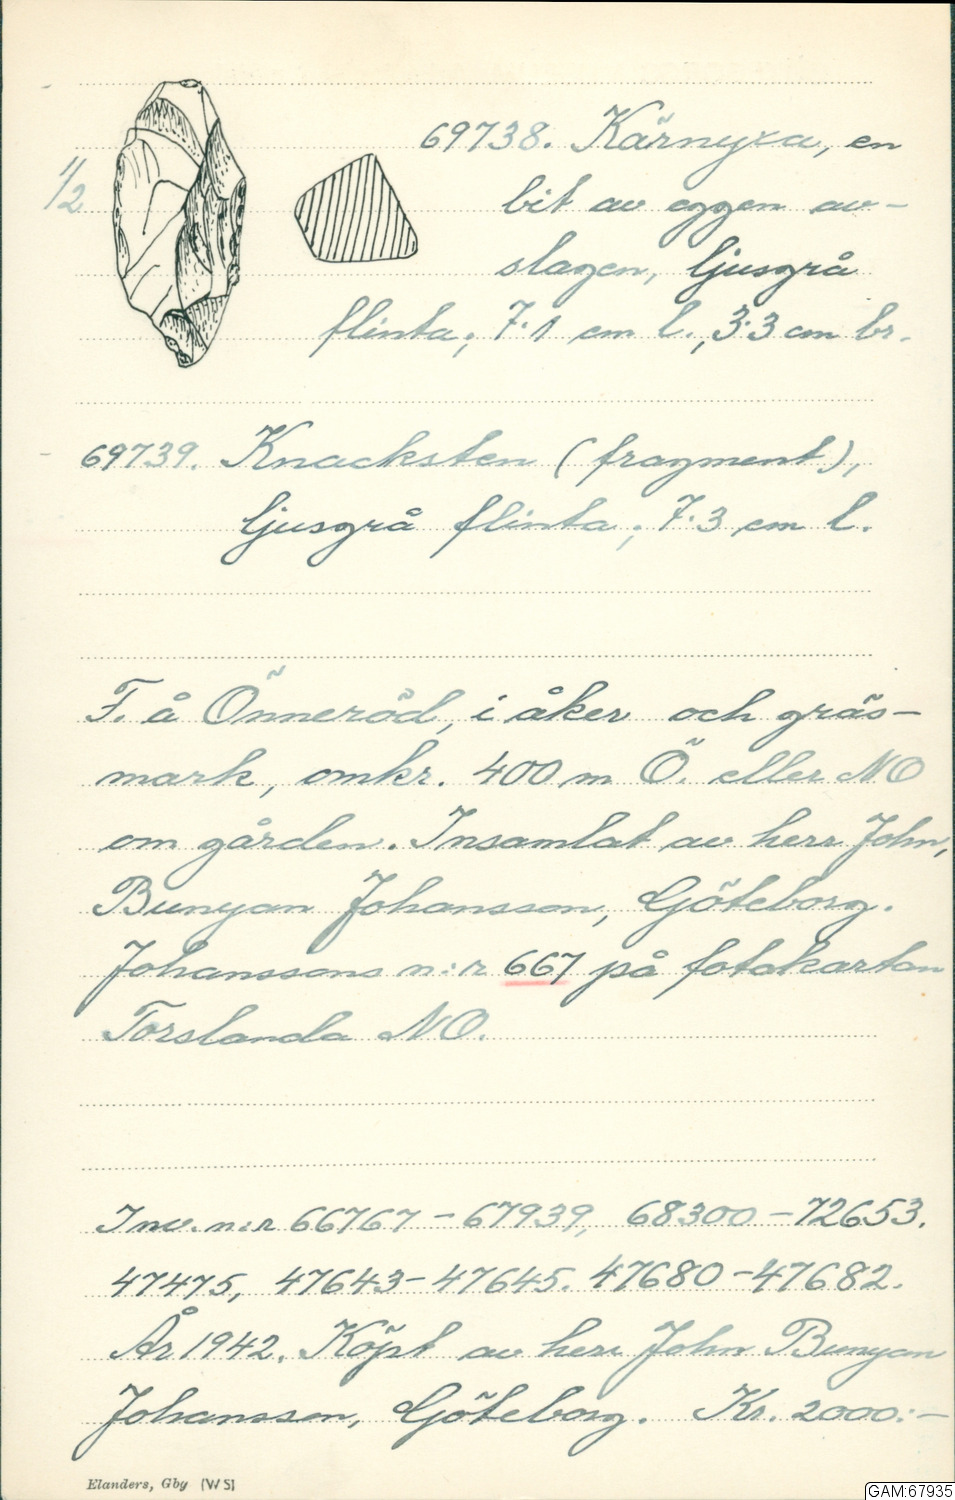 69738. Kärnyxa, en
1/2
bit av eggen av-
slagen, ljusgrå
flinta; 7.1 cm l., 3.3 cm br.
69739. Knacksten (fragment),
ljusgrå flinta; 7.3 cm l.
F. å Önneröd, i åker och gräs-
mark, omkr. 400 m Ö. eller NO
om gården. Insamlat av herr John,
Bunyan Johansson, Göteborg.
Johanssons n:r 667 på fotokartan
Torslanda NO.
Inv. n:r 66767-67939, 68300-72653.
47475, 47643-47645. 47680-47682.
År 1942. Köpt av herr John Bunyan
Johansson, Göteborg. Kr. 2000:-
Elanders, Gbg (WS)
GAM:67935